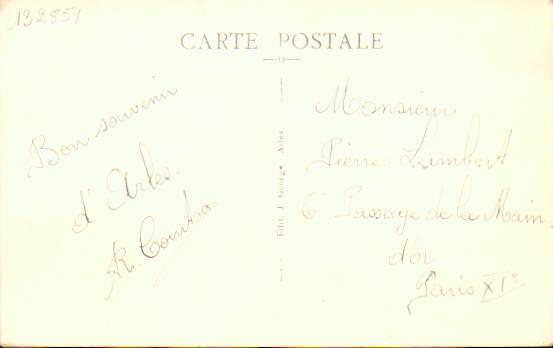 132851
CARTE POSTALE
Bon souvenir
d'Arles.
R.
Edit. J. George - Arles
Monsieur
Pierre Lambert
6 Passage de la Main
d'or
Paris XI°